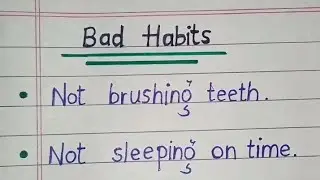 Bad Habits
• Not brushing teeth.
• Not sleeping on time.